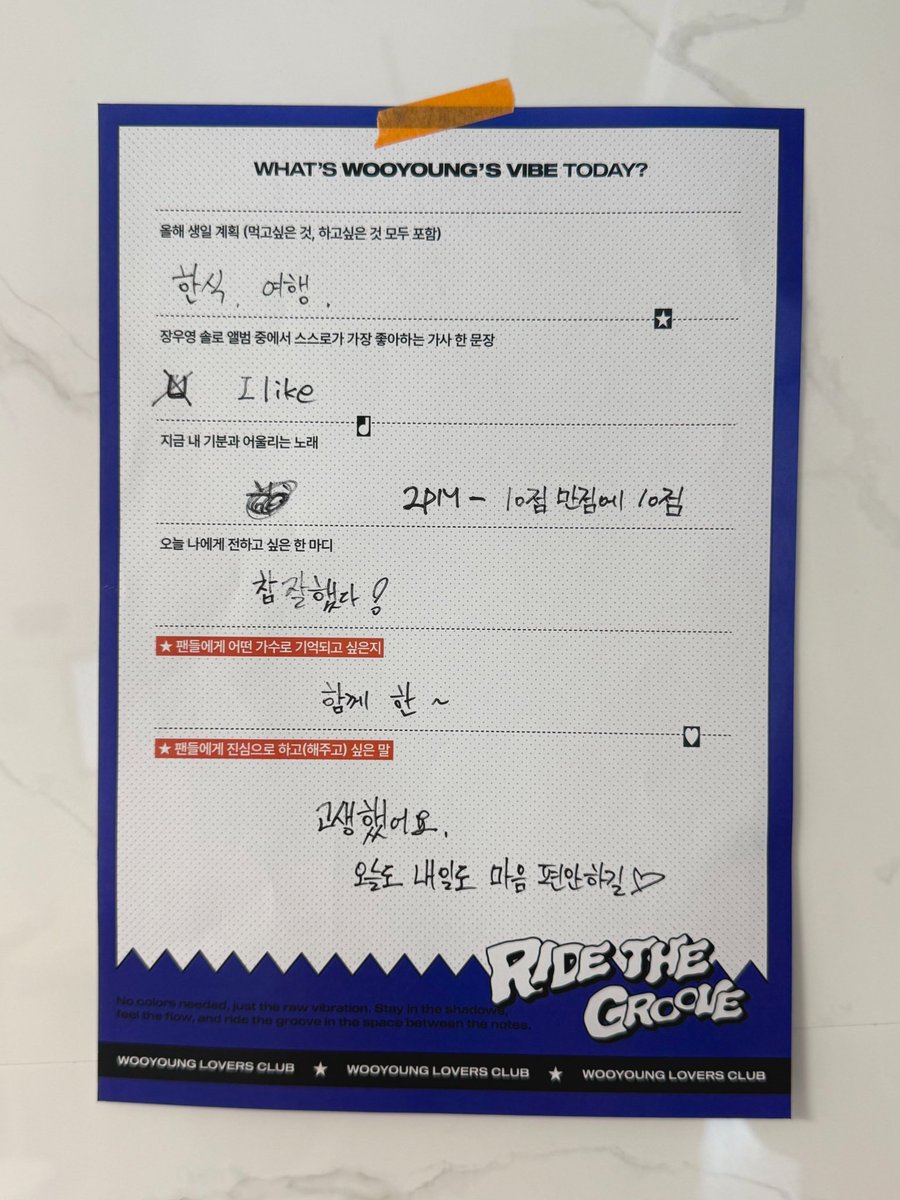 WHAT'S WOOYOUNG'S VIBE TODAY?
올해 생일 계획 (먹고싶은 것, 하고싶은 것 모두 포함)
한식, 여행.
장우영 솔로 앨범 중에서 스스로가 가장 좋아하는 가사 한 문장
I like
지금 내 기분과 어울리는 노래
2PM - 10점 만점에 10점
오늘 나에게 전하고 싶은 한 마디
참 잘했다!
★ 팬들에게 어떤 가수로 기억되고 싶은지
함께 한 ~
★ 팬들에게 진심으로 하고(해주고) 싶은 말
고생했어요.
오늘도 내일도 마음 편안하길♡
RIDE THE
GROOVE
No colors needed, just the raw vibration. Stay in the shadows,
feel the flow, and ride the groove in the space between the notes.
WOOYOUNG LOVERS CLUB ★ WOOYOUNG LOVERS CLUB ★ WOOYOUNG LOVERS CLUB